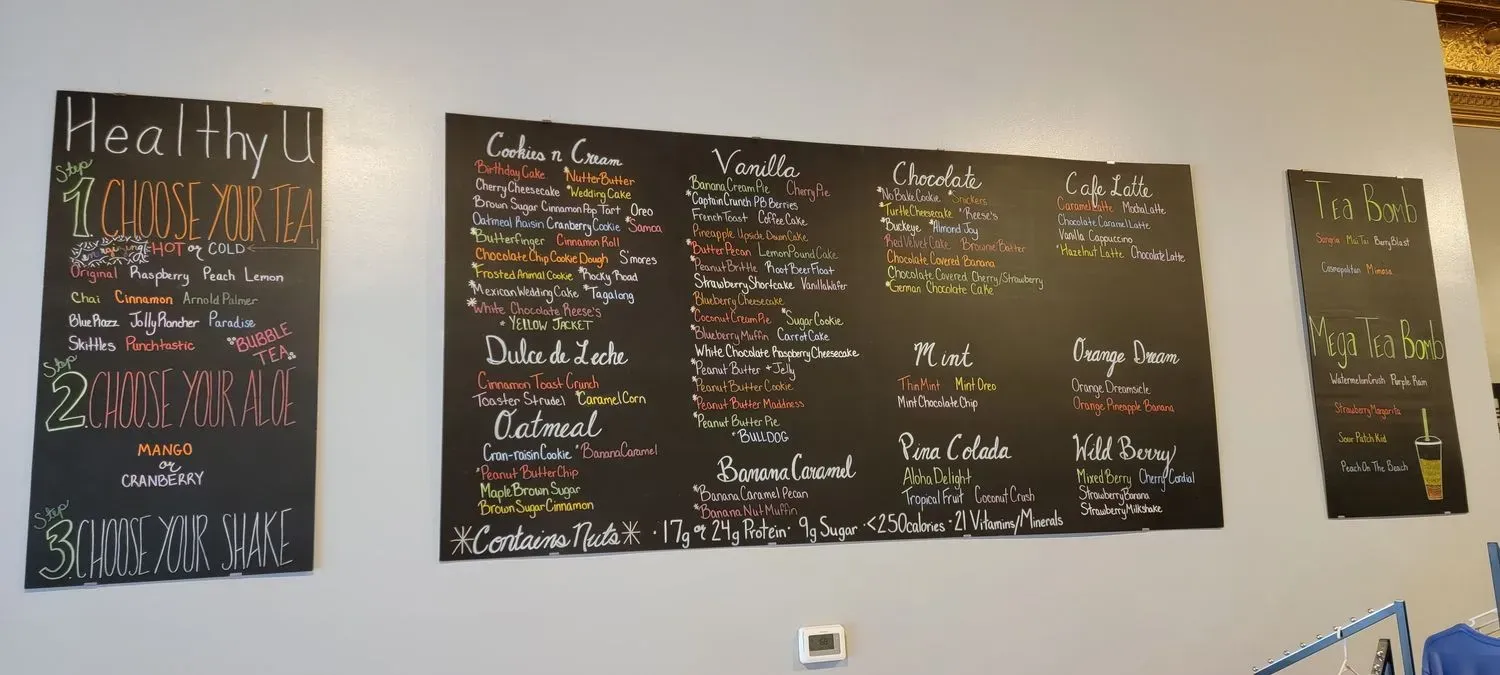 Healthy U
Step
1. CHOOSE YOUR TEA
HOT or COLD
Original Raspberry Peach Lemon
Chai Cinnamon Arnold Palmer
Blue Razz Jolly Rancher Paradise
Skittles Punchtastic
BUBBLE
TEA
Step
2. CHOOSE YOUR ALOE
MANGO
or
CRANBERRY
Step
3. CHOOSE YOUR SHAKE
Cookies n Cream
Birthday Cake *Nutter Butter
Cherry Cheesecake *Wedding Cake
Brown Sugar Cinnamon Pop Tart Oreo
Oatmeal Raisin Cranberry Cookie *Samoa
*Butterfinger Cinnamon Roll
Chocolate Chip Cookie Dough S'mores
*Frosted Animal Cookie *Rocky Road
*Mexican Wedding Cake *Tagalong
*White Chocolate Reese's
*YELLOW JACKET
Dulce de Leche
Cinnamon Toast Crunch
Toaster Strudel *Caramel Corn
Oatmeal
Cran-raisin Cookie *Banana Caramel
*Peanut Butter Chip
Maple Brown Sugar
Brown Sugar Cinnamon
Vanilla
Banana Cream Pie Cherry Pie
*Captain Crunch PB Berries
French Toast Coffee Cake
Pineapple Upside Down Cake
*Butter Pecan Lemon Pound Cake
*Peanut Brittle Root Beer Float
Strawberry Shortcake Vanilla Wafer
Blueberry Cheesecake
*Coconut Cream Pie *Sugar Cookie
*Blueberry Muffin Carrot Cake
White Chocolate Raspberry Cheesecake
*Peanut Butter + Jelly
*Peanut Butter Cookie
*Peanut Butter Maddness
*Peanut Butter Pie
*BULLDOG
Banana Caramel
*Banana Caramel Pecan
*Banana Nut Muffin
Chocolate
*No Bake Cookie *Snickers
*Turtle Cheesecake *Reese's
*Buckeye *Almond Joy
Red Velvet Cake Brownie Batter
Chocolate Covered Banana
Chocolate Covered Cherry/Strawberry
*German Chocolate Cake
Mint
Thin Mint Mint Oreo
Mint Chocolate Chip
Pina Colada
Aloha Delight
Tropical Fruit Coconut Crush
Cafe Latte
Caramel Latte Mocha Latte
Chocolate Caramel Latte
Vanilla Cappuccino
*Hazelnut Latte Chocolate Latte
Orange Dream
Orange Dreamsicle
Orange Pineapple Banana
Wild Berry
Mixed Berry Cherry Cordial
Strawberry Banana
Strawberry Milkshake
*Contains Nuts* · 17g or 24g Protein · 9g Sugar · <250calories · 21 Vitamins/Minerals
Tea Bomb
Sangria Mai Tai Berry Blast
Cosmopolitan Mimosa
Mega Tea Bomb
Watermelon Crush Purple Rain
Strawberry Margarita
Sour Patch Kid
Peach On The Beach